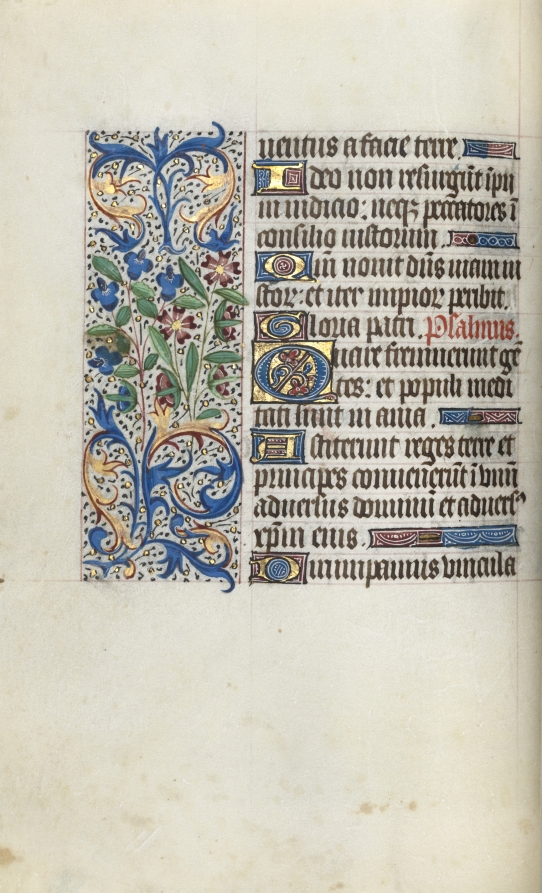 uentus a facie terre
Ideo non resurgūt ipii
in iudicio: neqȝ peccatores ī
consilio iustorum
Qm̄ nouit dn̄s uiam iu
stoꝝ: et iter impioꝝ peribit.
Gloria patri. Psalmus.
Quare fremuerunt gē
tes: et populi medi
tati sunt in ania.
Astiterunt reges terre et
principes conuenerūt ī vnū
aduersus dominū et aduersꝰ
xpm̄ eius.
Dirumpamus vincula